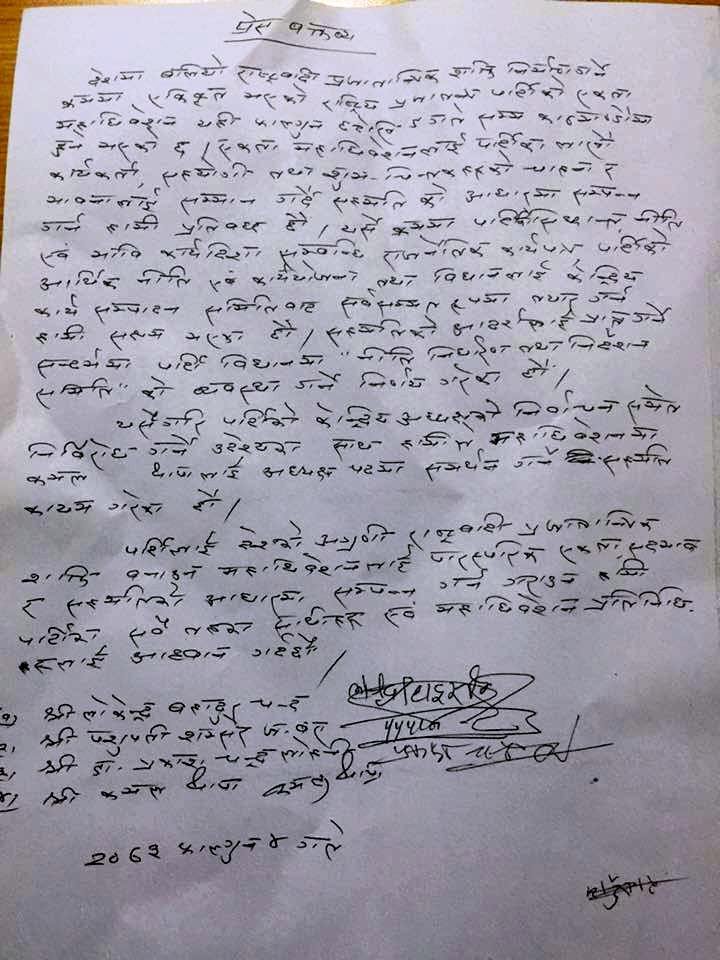 प्रेस वक्तव्य
देशमा बलियो राष्ट्रवादी प्रजातान्त्रिक शक्ति निर्माण गर्ने
क्रममा एकिकृत भएको राष्ट्रिय प्रजातन्त्र पार्टीको एकता
महाधिवेशन यही फाल्गुन देखि गते सम्म काठमाडौंमा
हुन गएको छ । एकता महाधिवेशनलाई पार्टीका लाखौं
कार्यकर्ता, सहयोगी तथा शुभ-चिन्तकहरुको चाहना र
भावनालाई सम्मान गर्दै सहमति को आधारमा सम्पन्न
गर्न हामी प्रतिवद्ध छौं । यसै क्रममा पार्टीको सिद्धान्त, नीति
एवं भावि कार्यदिशा सम्बन्धि राजनैतिक कार्यपत्र, पार्टीको
आर्थिक नीति एवं कार्ययोजना तथा विधानलाई केन्द्रिय
कार्य सम्पादन समितिबाट सर्वसम्मत रुपमा तयार गर्न
हामी सक्षम भएका छौं । सहमतिको आदर्शलाई प्राप्त गर्ने
सन्दर्भमा पार्टी विधानमा "नीति निर्धारण तथा निर्देशन
समिति" को व्यवस्था गर्ने निर्णय गरेका छौं ।
यसैगरि पार्टीको केन्द्रिय अध्यक्षको निर्वाचन समेत
निर्विरोध गर्ने उदेश्यका साथ हामीले महाधिवेशनमा
कमल थापालाई अध्यक्ष पदमा समर्थन गर्ने सहमति
कायम गरेका छौं ।
पार्टीलाई देशको अग्रणी राष्ट्रवादी प्रजातान्त्रिक
शक्ति बनाउन महाधिवेशनलाई पारस्परिक एकता, सद्भाव
र सहमतिको आधारमा सम्पन्न गर्न गराउन हामी
पार्टीका सबै तहका साथीहरु एवं महाधिवेशन प्रतिनिधि
हरुलाई आह्वान गर्दछौं ।
१) श्री लोकेन्द्र बहादुर चन्द
२. श्री पशुपती शमशेर ज.ब.रा
३. श्री डा. प्रकाश चन्द्र लोहनी
४) श्री कमल थापा कमल थापा
२०७३ फाल्गुन ४ गते